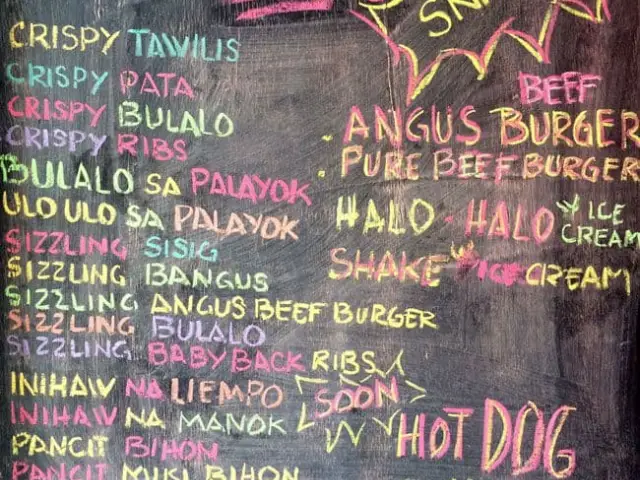 CRISPY TAWILIS
CRISPY PATA
CRISPY BULALO
CRISPY RIBS
BULALO SA PALAYOK
ULO ULO SA PALAYOK
SIZZLING SISIG
SIZZLING BANGUS
SIZZLING ANGUS BEEF BURGER
SIZZLING BULALO
SIZZLING BABY BACK RIBS
INIHAW NA LIEMPO
INIHAW NA MANOK
PANCIT BIHON
PANCIT MIKI BIHON
SOON
BEEF
- ANGUS BURGER
- PURE BEEF BURGER
HALO - HALO W/ ICE CREAM
SHAKE W/ ICE CREAM
HOT DOG